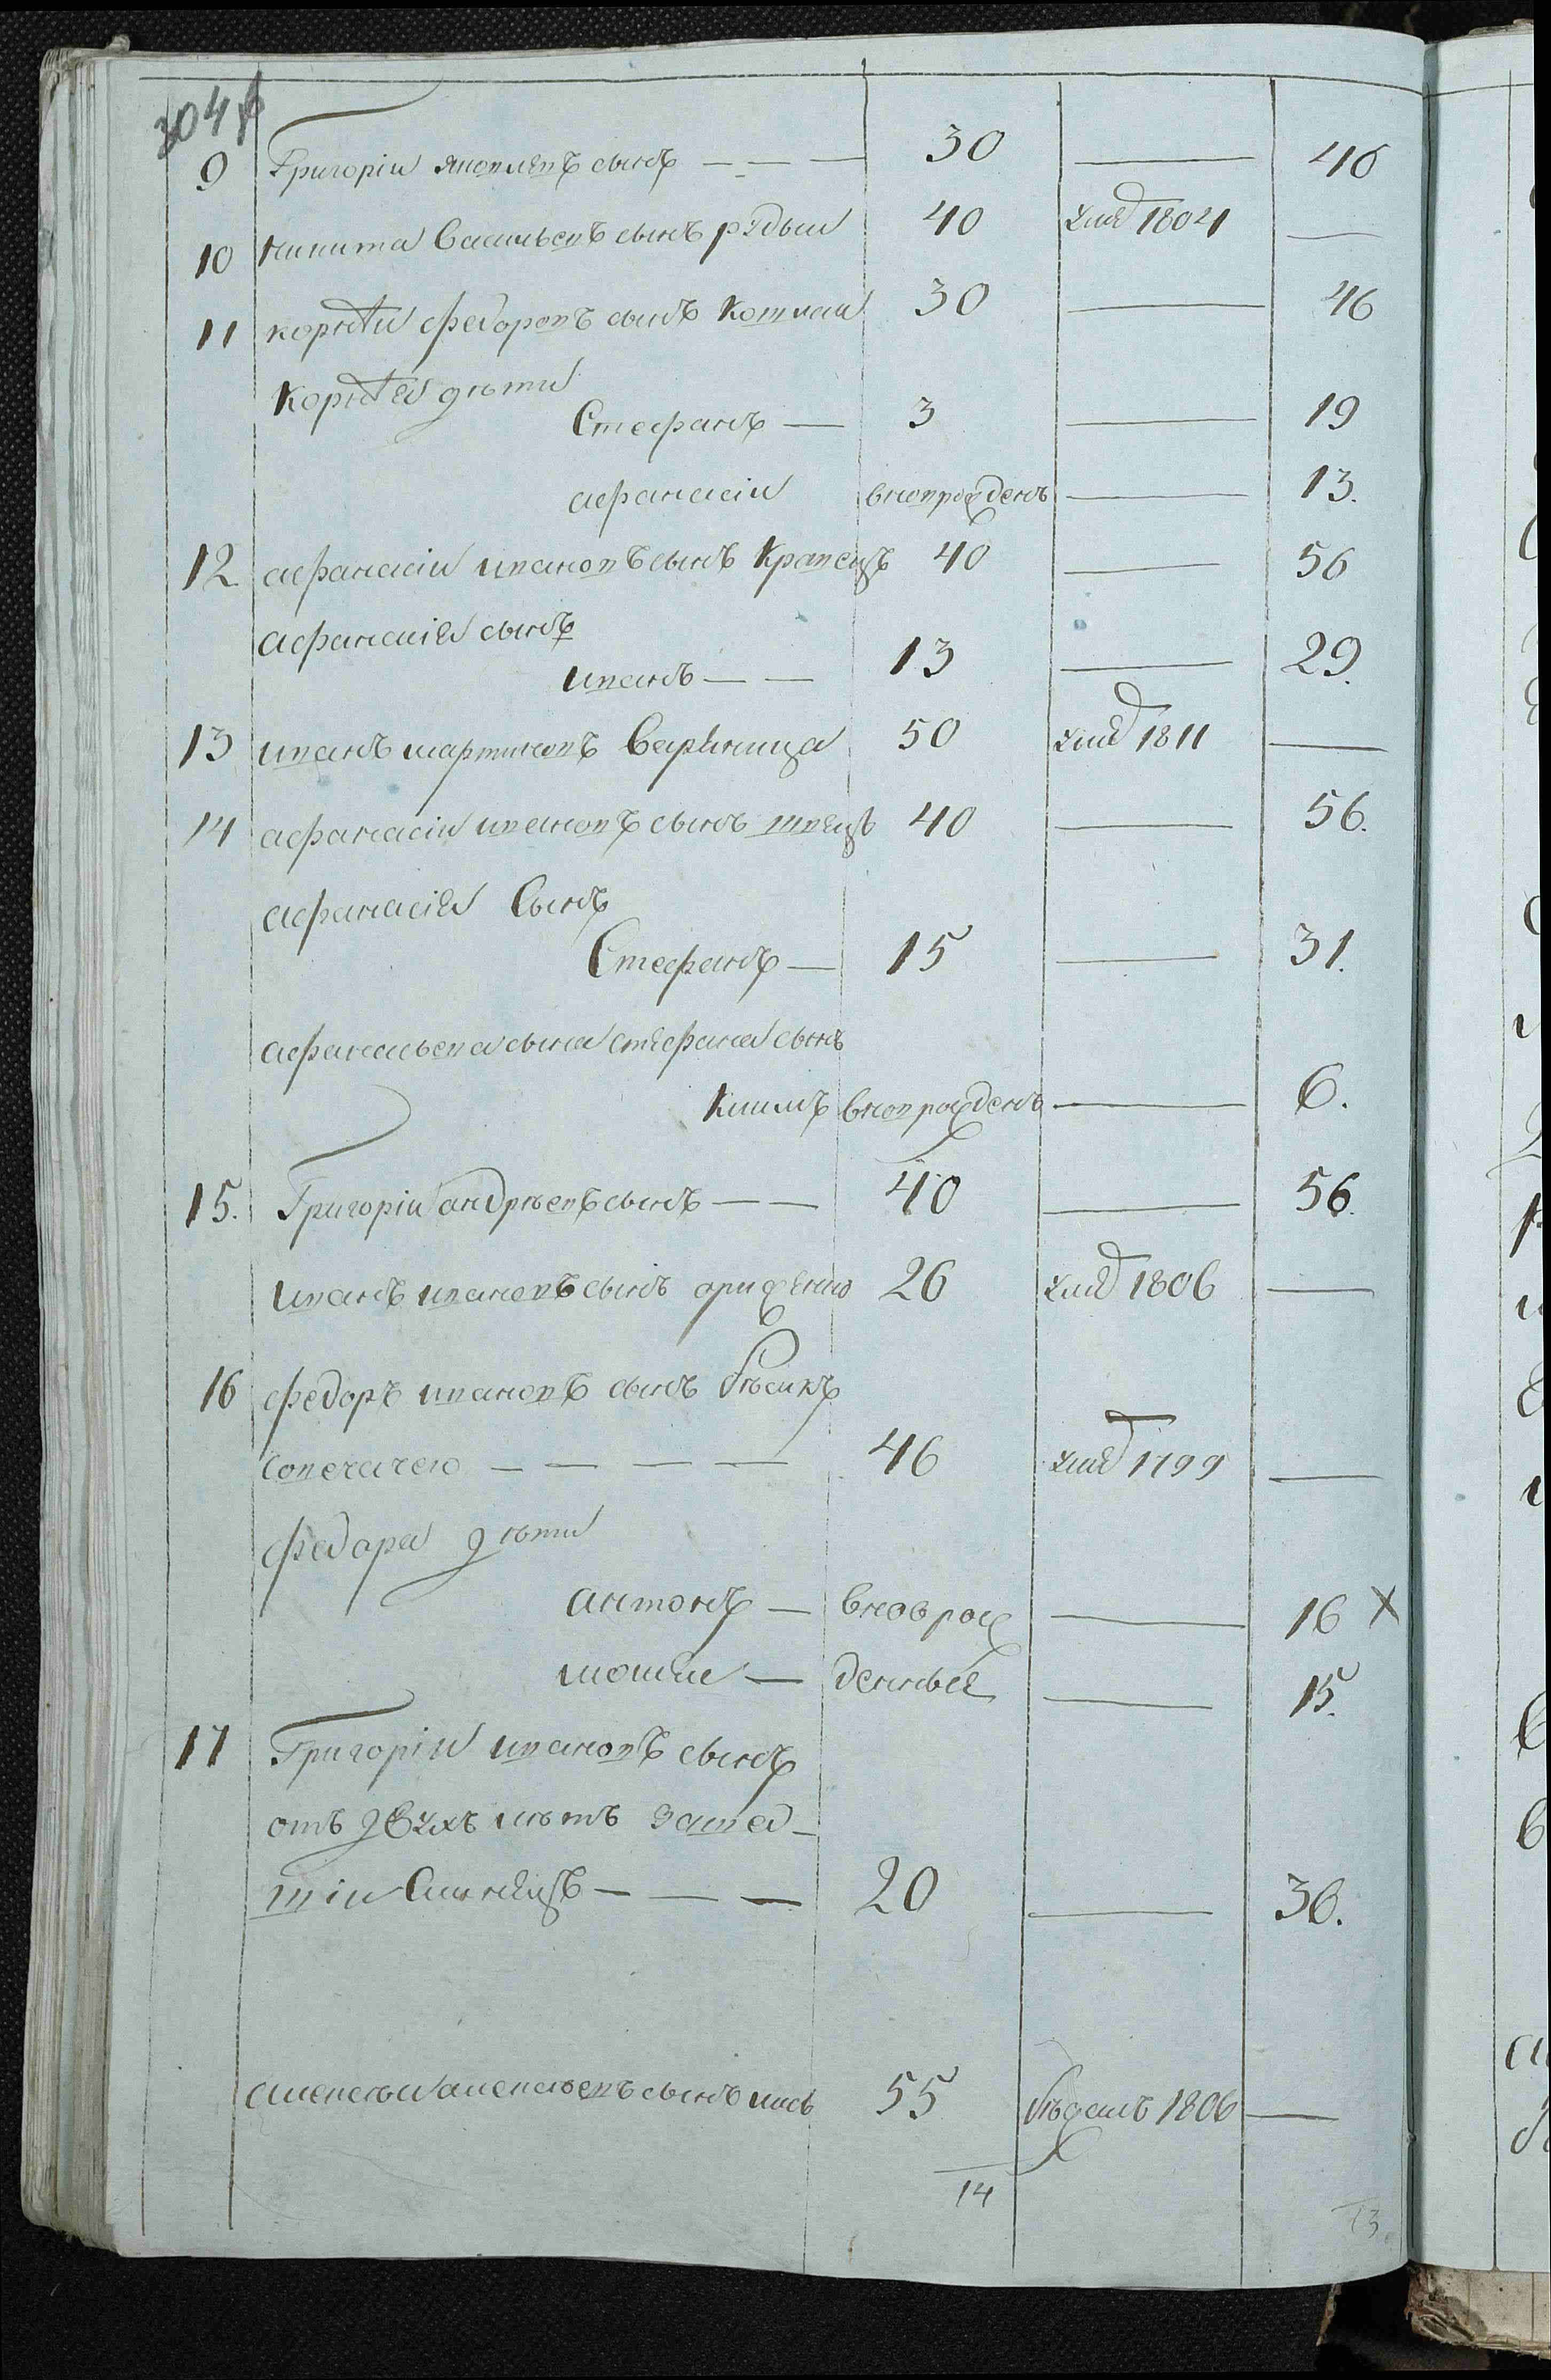 304
9 Григоріи яковлевъ сынъ — — — 30 — 46
10 никита васильевъ сынъ рудыи 40 умре 1804 —
11 корнѣи федоровъ сынъ Котляи 30 — 46
Корнѣя дѣти
Стефанъ — 3 — 19
афанасіи вноврожденъ — 13.
12 афанасіи ивановъ сынъ Кравецъ 40 — 56
афанасія сынъ
иванъ — — 13 — 29.
13 иванъ мартиновъ вареница 50 умре 1811 —
14 афанасіи ивановъ сынъ швецъ 40 — 56.
афанасія Сынъ
Стефанъ — 15 — 31.
афанасьева сына стефана сынъ
Климъ вноврожденъ — 6.
15. Григоріи андрѣевъ сынъ — — 40 — 56.
иванъ ивановъ сынъ 26 умре 1806 —
16 федоръ ивановъ сынъ
— — — — 46 умре 1799 —
федора дѣти
антонъ — вноврож — 16 X
— денные — 15.
17 Григоріи ивановъ сынъ
отъ двухъ лѣтъ зашед-
шіи — — — 20 — 36.
алексѣи алексѣевъ сынъ лисъ 55 бѣжалъ 1806 —
14
13.